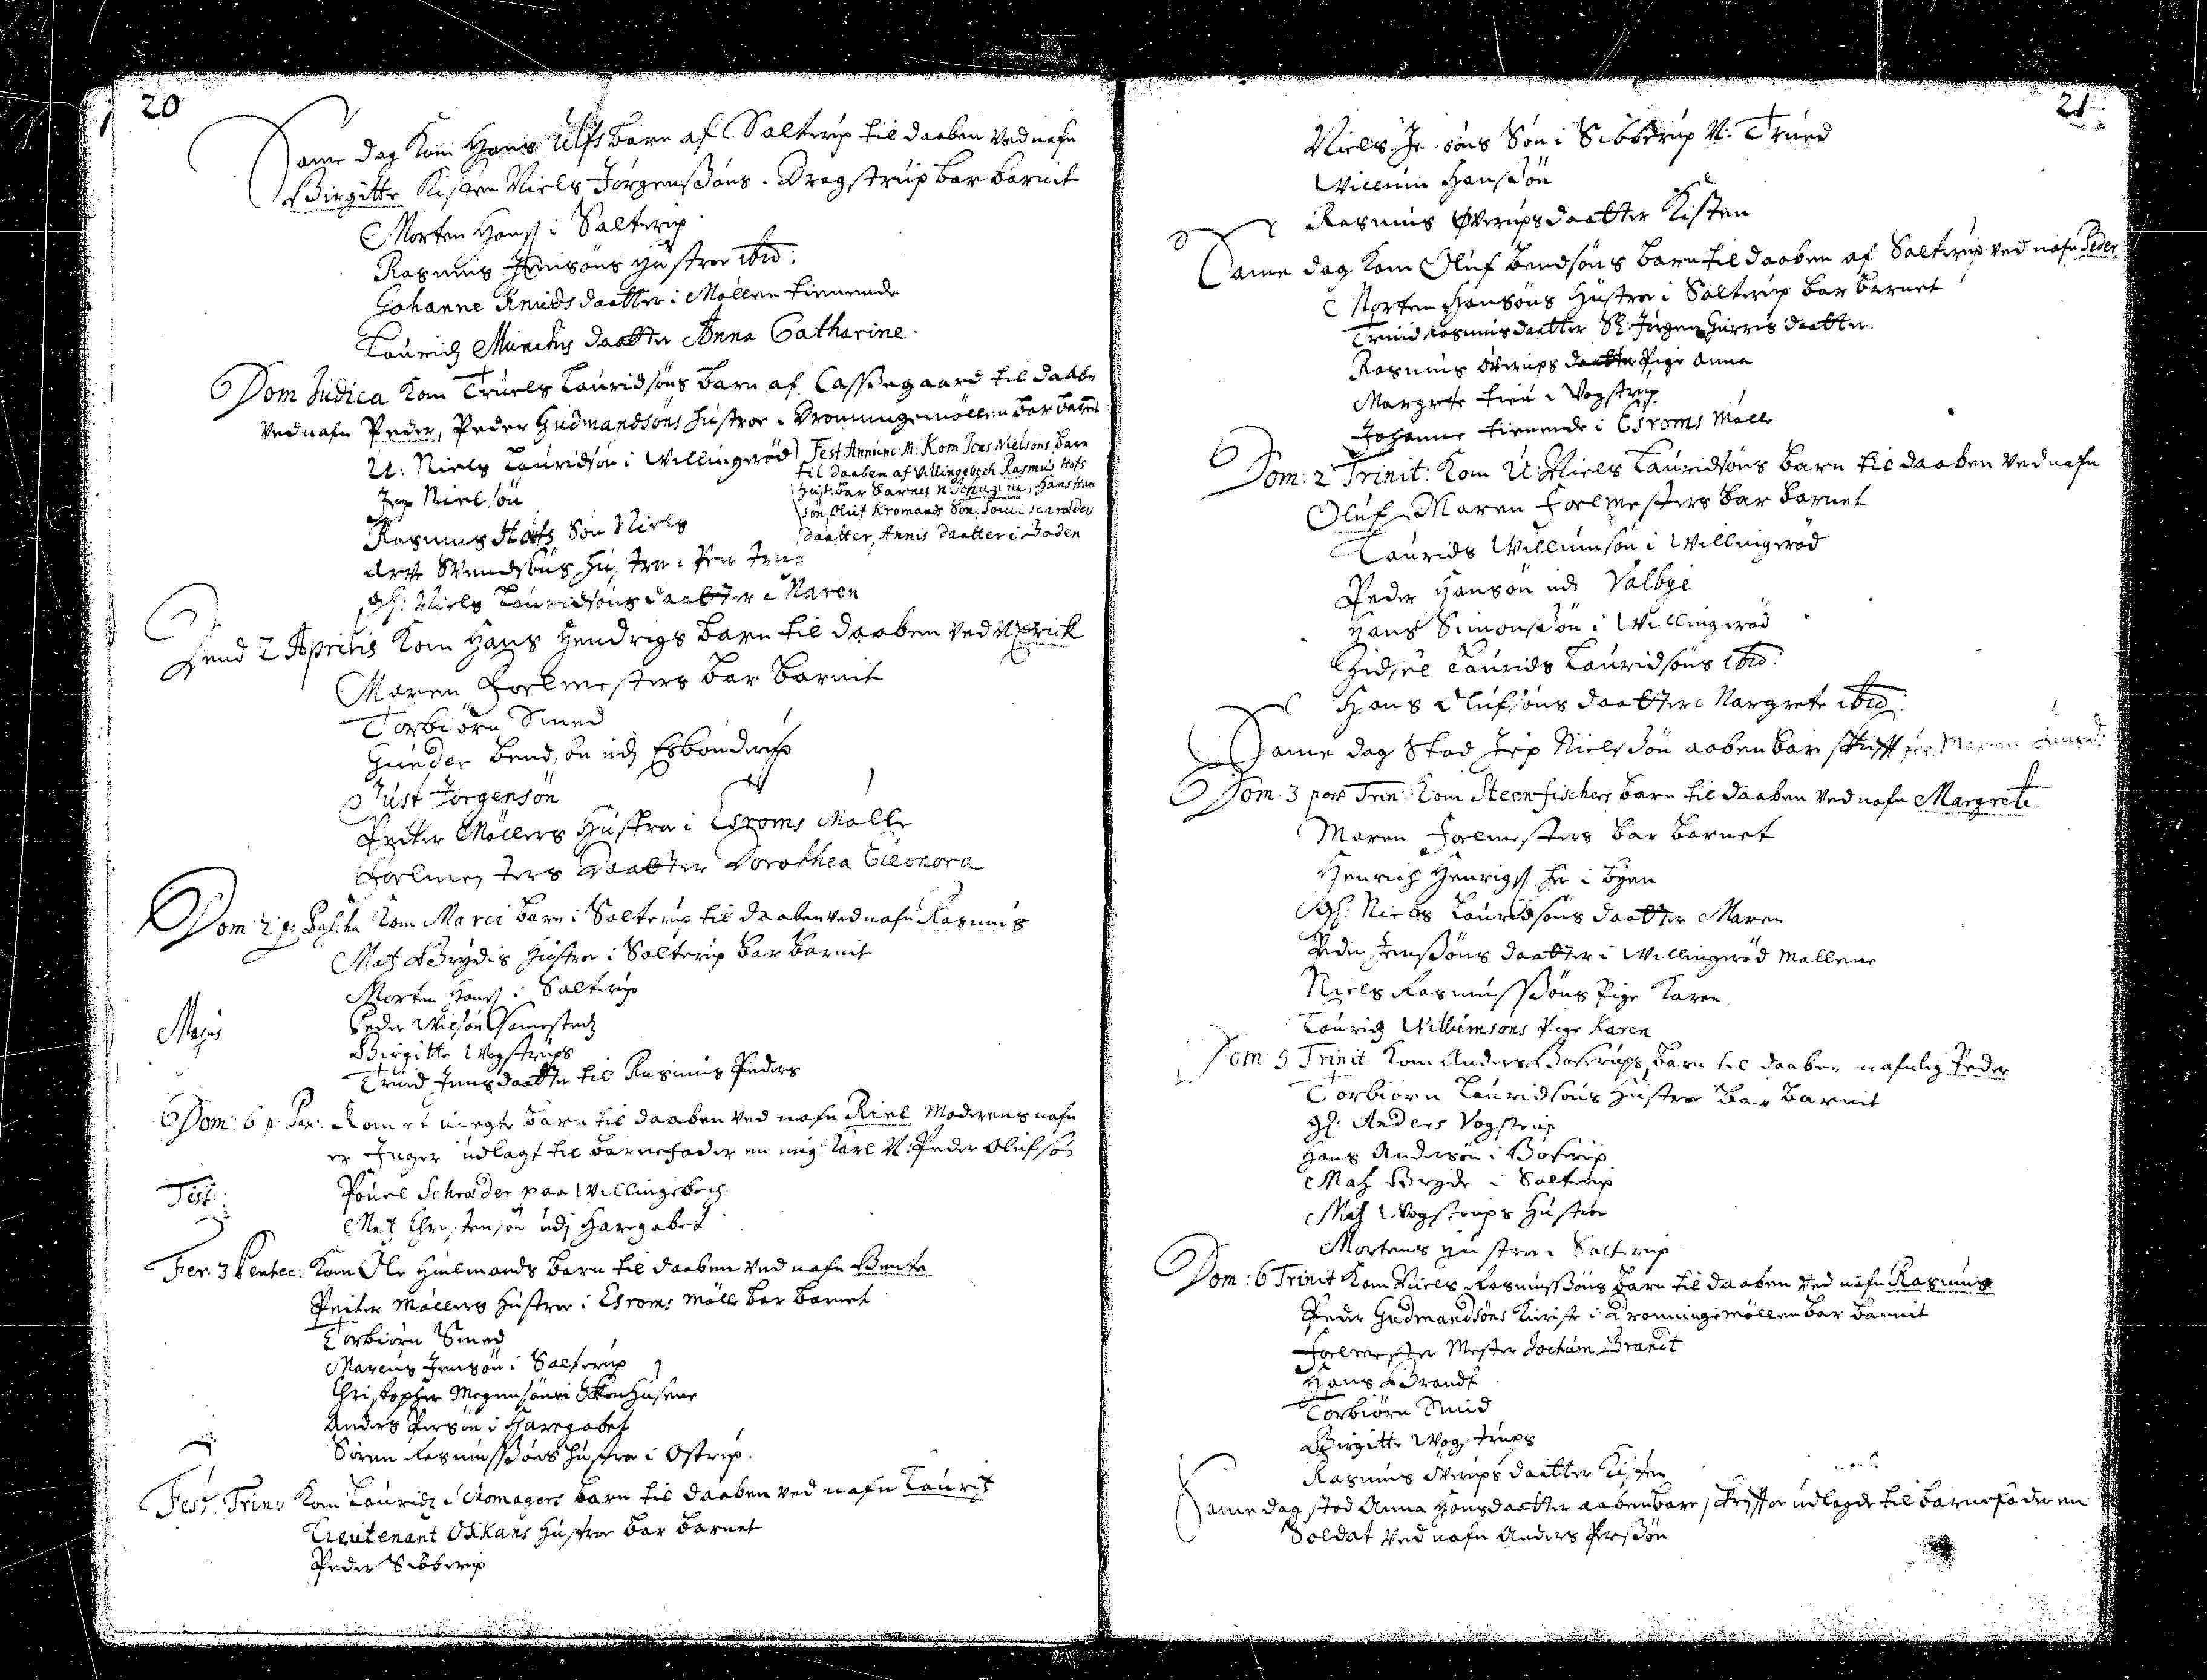 20
Same dag Kom Hans Ulfs barn af Salterup til daaben ved nafn
Birgitte Kisten Niels Jörgensöns i Dragstrup bar barnit
Morten Hans: i Salterup
Rasmus Jensöns hustroe ibid:
Johanne Knudsdaatter i Möllen tienende
Lauridz Munchis daatter Anna Catharine.
Dom Judica Kom Truels Lauridsöns barn af Cassegaard til daabe
ved nafn Peder, Peder Gudmandsöns hustroe i Dronningmöllen bar barnet
U: Niels Lauridsön i Willingeröd
Jep Nielsön
Rasmus Hofs Sön Niels
Arve Svendsöns hustroe
gl: Niels Lauridsöns daatter Maren
Fest Annunc: M: Kom Jens Nielsöns barn
til daaben af Villingebech Rasmus Hofs
Hust: bar barnet n:, Hans Han
sön Oluf Kromands Sön, Povel Schrøders
daatter, Annis daatter i Boden
Dend 2 Aprilis Kom Hans Hendrigs barn til daaben ved N: Erick
Maren Forlmesters bar barnit
Torbiörn Smed
Gunder Bendsön udj Esbonderup
Just Jorgensön
Peiter Möllers Hustroe i Esroms Mölle
Forlmesters Daatter Dorothea Eleonora
Dom: 2 p: Pascha Kom Marci barn i Salterup til daaben ved nafn Rasmus
Matz Brydis Hustroe i Salterup bar barnit
Morten Hans: i Salterup
Majus
Peder Nielsön Somestedz
Birgitte Wogstrups
Truid Jensdaatter til Rasmus Peders
Dom: 6 p: Pas: Kom et uegte barn til daaben ved nafn Kiel Moderens nafn
er Inger udlagt til barnefader en ung Karl N: Peder Olufsön
Test:
Povel Schrøder paa Willingebech
Matz Christensön udj Haregabet
Fer: 3 Pentec: Kom Ole Hiulmands barn til daaben ved nafn Bente
Peiter Möllers Hustroe i Esroms Mölle bar barnet
Torbiörn Smed
Marcus Jensön i Salterup
Christopher Mogensön i Husene
Anders Persön i Haregabet
Sören Rasmussöns hustroe i Ostrup.
Fest: Trin: Kom Lauridz Skomagers barn til daaben ved nafn Lauritz
Lieutenant Oskans Hustroe bar barnet
Peder Sibberup
21
Niels Je söns Sön i Sibberup N: Trued
Willum Hansön
Rasmus Øverups daatter Kisten
Same dag Kom Oluf Bendsöns barn til daaben af Salterup ved nafn Peder
Morten Hansöns Hustroe i Salterup bar barnet
Truid Rasmusdaatter Sl: Jörgen Hurris daatter
Rasmus Øverups Pige Anna
Margrete tien: i Vogstrup
Johanne tienende i Esroms Mölle
Dom: 2 Trinit: Kom U: Niels Lauridsöns barn til daaben ved nafn
Oluf Maren Forlmesters bar barnet
Laurids Willumsön i Willingeröd
Peder Hansön udi Valbye
Hans Simonsön i Willingeröd
Zidsel Laurids Lauridsöns ibid:
Hans Olufsöns daatter Margrete ibid:
Same dag Stod Jep Nielsön aabenbare skrifft for Maren
Dom: 3 post Trin: Kom Steenfischers barn til daaben ved nafn Margrete
Maren Forlmesters bar barnet
Henrich Henrigs: her i byen
gl: Niels Lauridsöns daatter Maren
Peder Jensöns daatter i Willingeröd Mallene
Niels Rasmussöns Pige Karen
Lauridz Willumsöns Pige Karen
Dom: 5 Trinit Kom Anders Boserups barn til daaben nafnlig Peder
Torbiörn Lauridsöns Hustroe bar barnit
gl: Anders Vogstrup
Hans Andersön i Boserup
Matz Bryde i Salterup
Matz Wogstrups Hustroe
Mortens hustroe i Salterup
Dom: 6 Trinit Kom Niels Rasmussöns barn til daaben ved nafn Rasmus
Peder Gudmandsöns i Dronningemöllen bar barnit
Forlmester Mester Jochum Brandt
Hans Brandt
Torbiörn Smid
Birgitte Wogstrups
Rasmus Øverups daatter Kisten
Same dag stod Anna Hansdaatter aabenbare skriffte udlagde til barnefader en
Soldat ved nafn Anders Persön